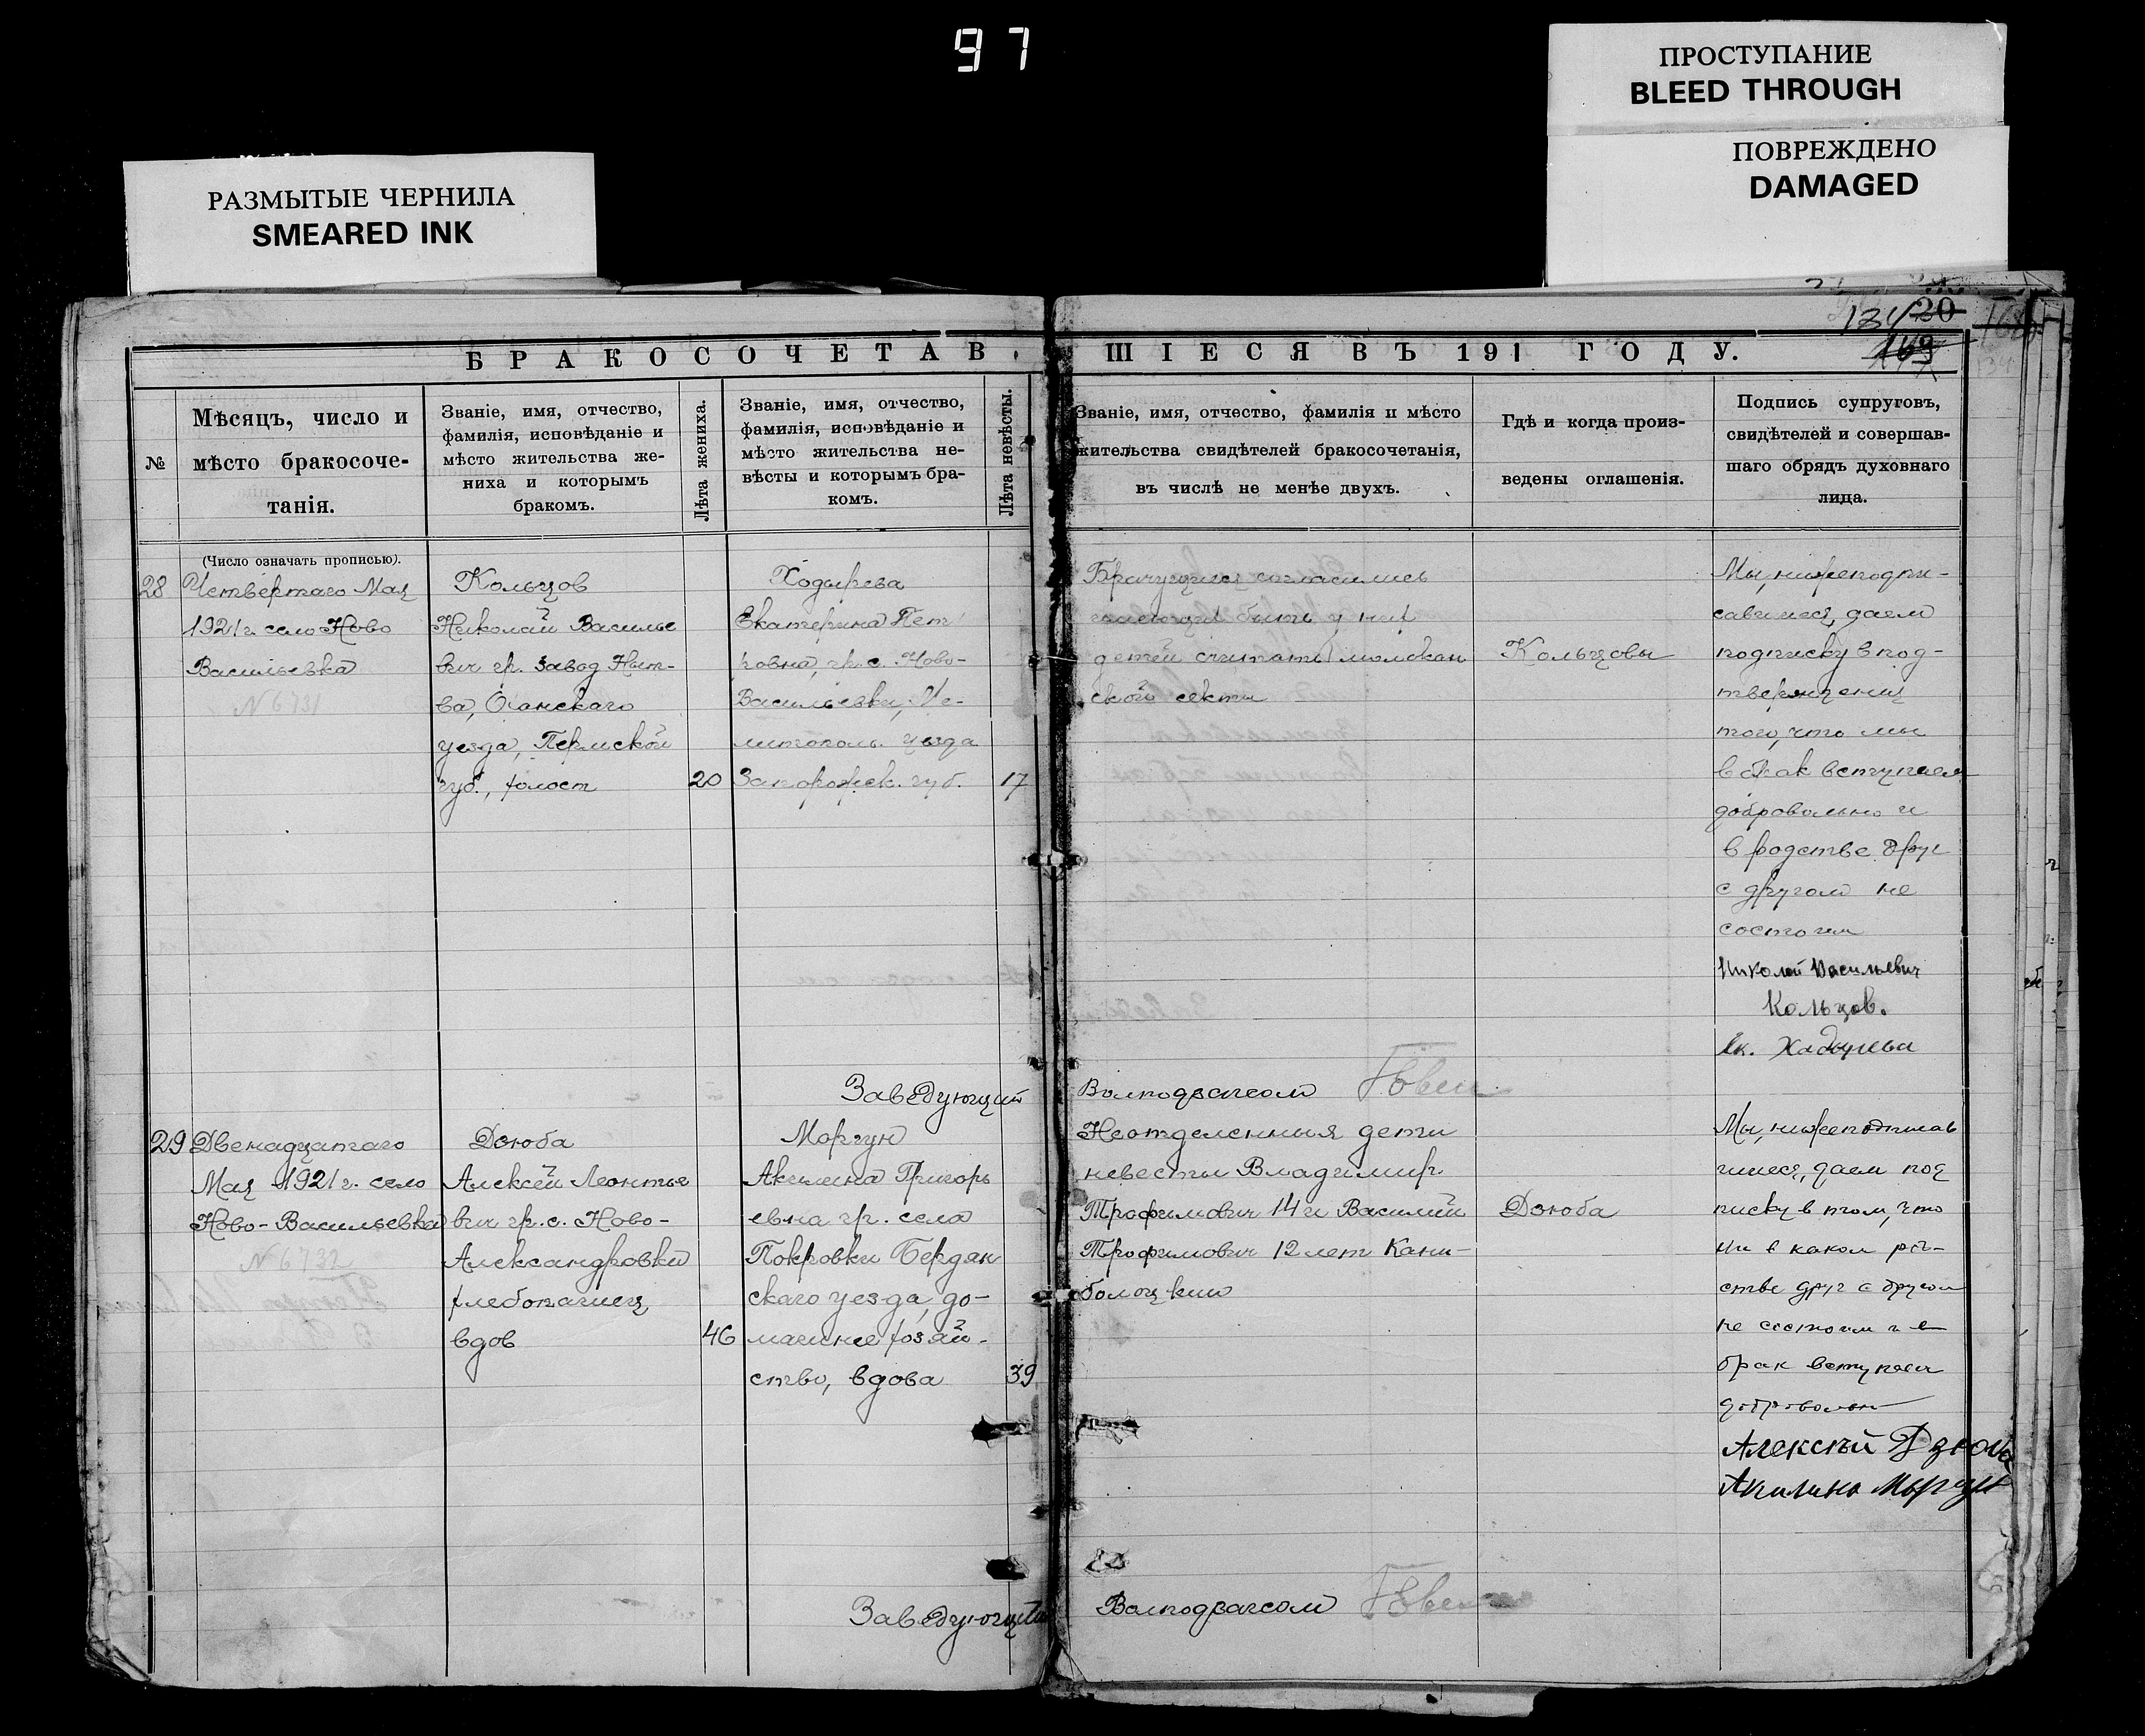 97
ПРОСТУПАНИЕ
BLEED THROUGH
ПОВРЕЖДЕНО
DAMAGED
РАЗМЫТЫЕ ЧЕРНИЛА
SMEARED INK
20
169
БРАКОСОЧЕТАВ
ШІЕСЯ ВЪ 191 ГОДУ.
№
Мѣсяцъ, число и
мѣсто бракосоче-
танія.
Званіе, имя, отчество,
фамилія, исповѣданіе и
мѣсто жительства же-
ниха и которымъ
бракомъ.
Лѣта жениха.
Званіе, имя, отчество,
фамилія, исповѣданіе и
мѣсто жительства не-
вѣсты и которымъ бра-
комъ.
Лѣта невѣсты.
Званіе, имя, отчество, фамилія и мѣсто
жительства свидѣтелей бракосочетанія,
въ числѣ не менѣе двухъ.
Гдѣ и когда произ-
ведены оглашенія.
Подпись супруговъ,
свидѣтелей и совершав-
шаго обрядъ духовнаго
лица.
(Число означать прописью).
28
Четвертаго Мая
1921 г. село Ново
Васильевка
№ 6731
Кольцов
Николай Василье
вич гр. завод Ныт-
ва, Оханскаго
уезда, Пермской
губ., холост
20
Ходырева
Екатерина Пет
ровна, гр. с. Ново-
Васильевки, Ме-
литополь. уезда
Запорожск. губ.
17
Брачущиеся согласились
имеющих быть у них
детей считать молокан
ской секты
Кольцовы
Мы, нижеподпи-
савшиеся, даем
подписку в под-
тверждении
того, что мы
в брак вступаем
добровольно и
в родстве друг
с другом не
состоим
Николай Васильевич
Кольцов.
Ек. Хадырева
Заведующий
Волподзагсом
29
Двенадцатаго
Мая 1921 г. село
Ново-Васильевка
№ 6732
Дзюба
Алексей Леонтье
вич гр. с. Ново-
Александровки
хлебопашец
вдов
46
Моргун
Акилина Григорь
евна гр. села
Покровки Бердян
скаго уезда, до-
машнее хозяй-
ство, вдова
39
Неотделенныя дети
невесты Владимир
Трофимович 14 и Василий
Трофимович 12 лет Кани-
болоцкии
Дзюба
Мы, нижеподписав
шиеся, даем под
писку в том, что
ни в каком род-
стве друг с другом
не состоим и в
брак вступаем
добровольно
Алексѣй Дзюба
Акилина Моргун
Заведующий
Волподзагсом